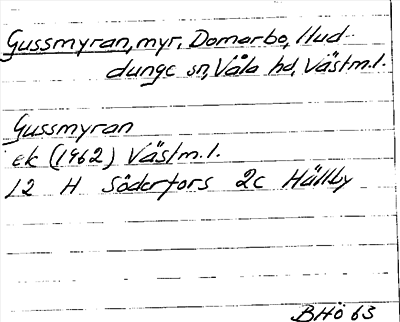 Gussmyran, myr, Domarbo, Hud-
dunge sn, Våla hd, Västm.l.
Gussmyran
ek (1962) Västm.l.
12 H Söderfors 2c Hällby
BHö 63